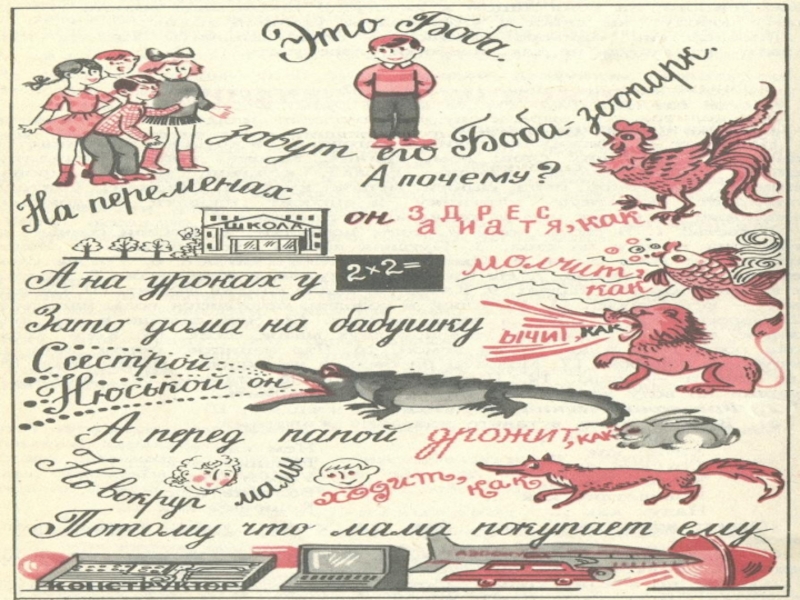 Это Боба.
зовут его Боба-зоопарк.
А почему?
На переменах
ШКОЛА
он задирается, как
А на уроках у 2×2=
молчит,
как
Зато дома на бабушку ЫЧИТ, КАК
С сестрой
Нюськой он
А перед папой дрожит, как
Но вокруг мамы ходит, как
Потому что мама покупает ему
КОНСТРУКТОР